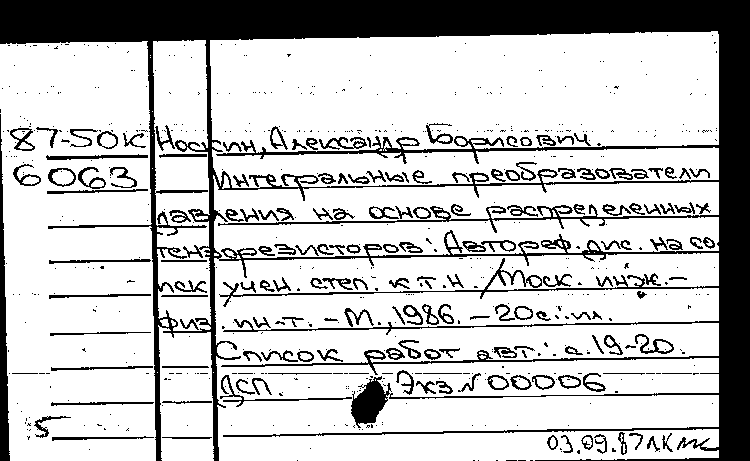 87-50К Носкин, Александр Борисович.
6063 Интегральные преобразователи
давления на основе распределенных
тензорезисторов: Автореф. дис. на со-
иск. учен. степ. к.т.н. / Моск. инж.-
физ. ин-т. - М., 1986. - 20с.: ил.
Список работ авт.: с. 19-20.
ДСП. Экз. N 00006.
5
03.09.87